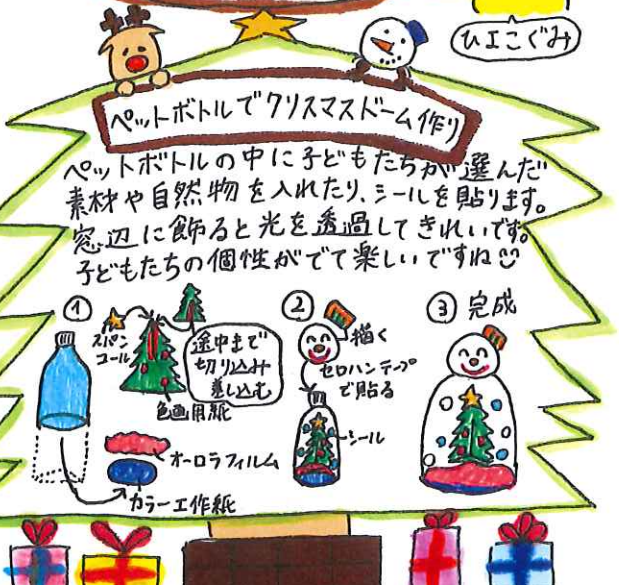 ひよこぐみ
ペットボトルでクリスマスドーム作り
ペットボトルの中に子どもたちが選んだ
素材や自然物を入れたり、シールを貼ります。
窓辺に飾ると光を透過してきれいです。
子どもたちの個性がでて楽しいですね
①
スパン
コール
途中まで
切り込み
差し込む
色画用紙
オーロラフィルム
カラー工作紙
②
描く
セロハンテープ
で貼る
シール
③ 完成